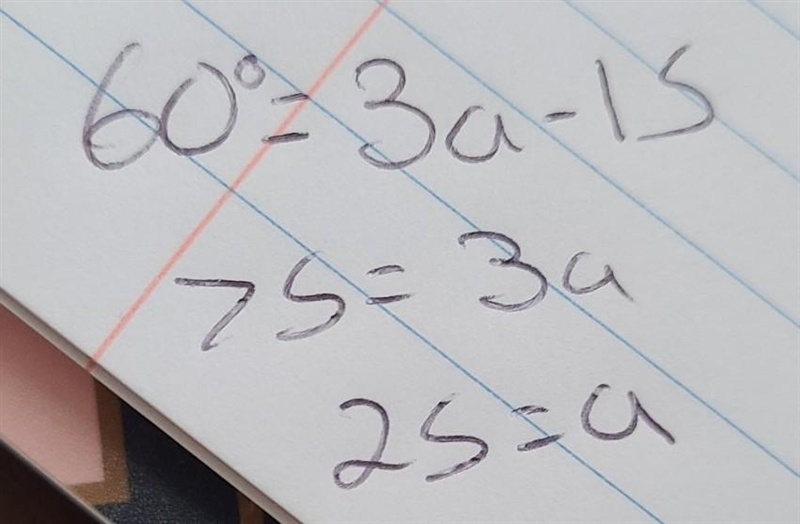 60° = 3a - 15
75 = 3a
25 = a